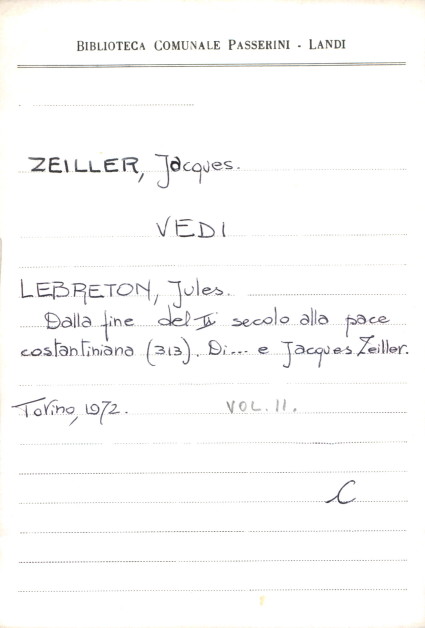 BIBLIOTECA COMUNALE PASSERINI - LANDI
ZEILLER, Jacques.
VEDI
LEBRETON, Jules.
Dalla fine del II secolo alla pace
costantiniana (313). Di... e Jacques Zeiller.
Torino, 1972. VOL. II.
C